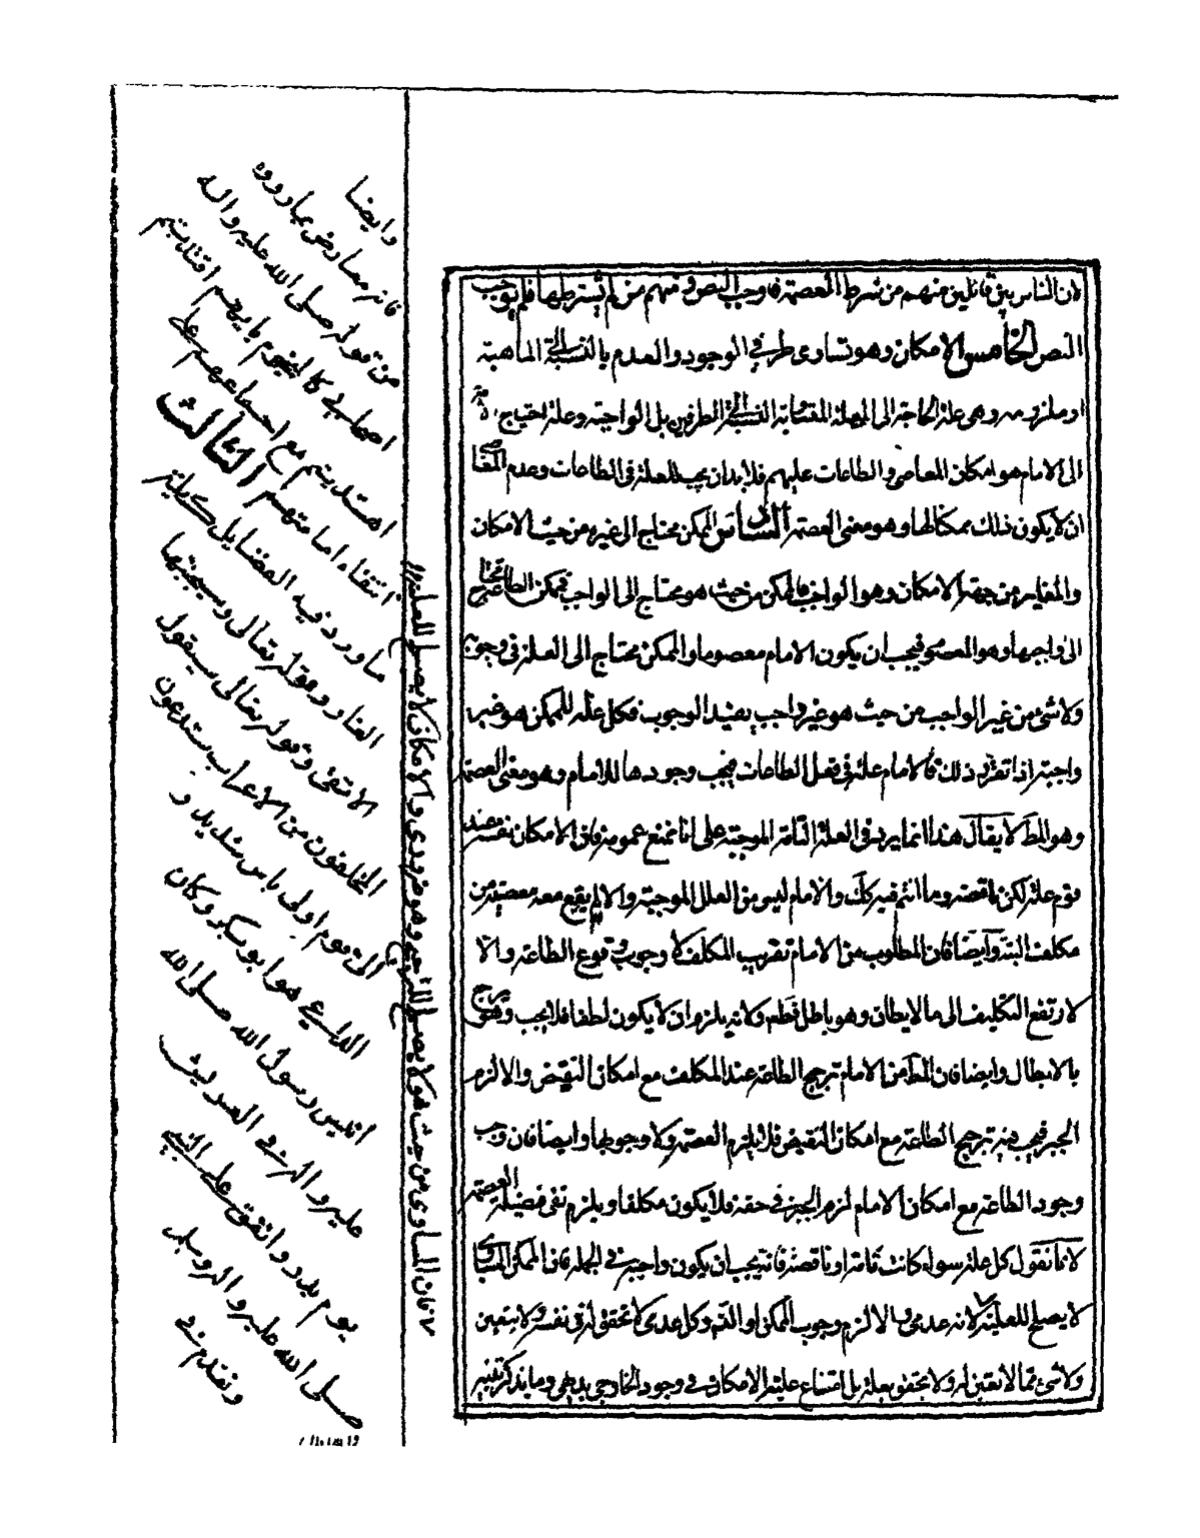 لان الناس بين قائلين منهم من شرط العصمة فاوجب النص ومنهم من لم يشترطها فلم يوجب
النص الخامس الامكان وهو تساوى طرفي الوجود والعدم بالنسبة الى الماهية
او ملزومه وهى علة الحاجة الى العلة المتشابة النسبة الى الطرفين بل الواجبة وعلة احتياج
الى الامام هو امكان المعاصى والطاعات عليهم فلابد ان يجب للعلة في الطاعات وعدم المعاصى
ان لا يكون ذلك ممكنا لها وهو معنى العصمة السادس الممكن محتاج الى غيره من حيث الامكان
والمغايرة من جهة الامكان وهو الواجب فالممكن من حيث هو محتاج الى الواجب فممكن الطاعة محتاج
الى واجبها وهو المعصوم فيجب ان يكون الامام معصوما والممكن محتاج الى العلة في وجوبه
ولا شئ من غير الواجب من حيث هو غير واجب يفيد الوجوب فكل علة للممكن هو غيره
واجبة اذا تقرر ذلك فالامام علة في فعل الطاعات فيجب وجودها للامام وهو معنى العصمة
وهو المط لا يقال هذا انما يرد في العلة التامة الموجبة على انا نمنع عمومه فان الامكان نفسه عند
قوم علة لكن ناقصة وما انتم فيه كك والامام ليس من العلل الموجبة والا لم يقع معه معصية من
مكلف البتة وايضا فان المطلوب من الامام تقريب المكلف لا وجوب وقوع الطاعة والا
لارتفع التكليف الى ما لا يطاق وهو باطل قطعا ولانه يلزم ان لا يكون لطفا فلا يجب
بالابطال وايضا فان المط من الامام ترجيح الطاعة عند المكلف مع امكان النقيض والا لزم
الجبر فيجب فيه ترجيح الطاعة مع امكان النقيض فلا يلزم العصمة ولا وجوبها وايضا فان وجب
وجود الطاعة مع امكان الامام لزم الجبر في حقه فلا يكون مكلفا ويلزم نفى فضيلة العصمة
لانا نقول كل علة سواء كانت تامة او ناقصة فانه يجب ان يكون واجبة في الجملة فان الممكن المساوى
لا يصلح للعلية لانه عدمى والا لزم وجوب الممكن او القدم وكل عدمى لا تحقق له في نفسه لا يتعين
ولا شئ مما لا تعين له ولا تحقق بعلة بل امتناع علية الامكان في وجود الخارجى بديهى وما يذكر تنبيه
فان المساوى من حيث هو لا يصلح للترجيح وهو ضرورى والامكان لا يصلح للعلية
وايضا
فانه معارض بما رووه
من قوله صلى الله عليه واله
اصحابي كالنجوم بايهم اقتديتم
اهتديتم مع اجماعهم على
انتفاء امامتهم الثالث
ما ورد فيه الفضايل كاية
الغار وقوله تعالى وسيجنبها
الاتقى وقوله تعالى سيقول
المخلفون من الاعراب ستدعون
الى قوم اولى باس شديد و
الداعى هو ابو بكر وكان
انيس رسول الله صلى الله
عليه واله في العريش
يوم بدر وانفق على النبي
صلى الله عليه واله وسلم
وتقدم في